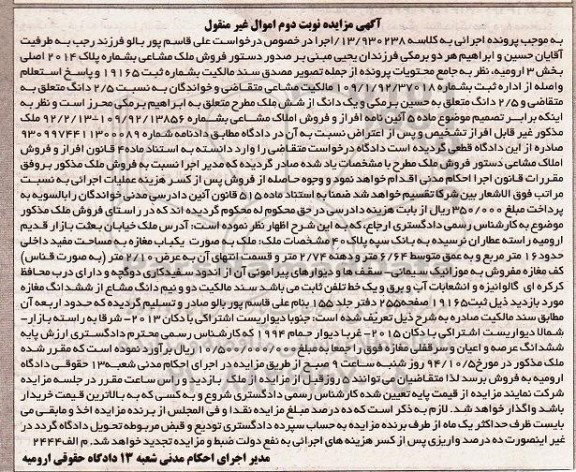 آگهی مزایده نوبت دوم اموال غیر منقول
به موجب پرونده اجرائی به کلاسه ۱۳/۹۳۰۲۳۸/اجرا در خصوص درخواست علی قاسم پور بالو فرزند رجب به طرفیت
آقایان حسین و ابراهیم هر دو برمکی فرزندان یحیی مبنی بر صدور دستور فروش ملک مشاعی بشماره پلاک ۲۰۱۴ اصلی
بخش ۳ ارومیه، نظر به جامع محتویات پرونده از جمله تصویر مصدق سند مالکیت بشماره ثبت ۱۹۱۶۵ و پاسخ استعلام
واصله از اداره ثبت بشماره ۱۰۹/۱/۹۲/۳۷۰۱۸ مالکیت مشاعی متقاضی و خواندگان به نسبت ۲/۵ دانگ متعلق به
متقاضی و ۲/۵ دانگ متعلق به حسین برمکی و یک دانگ از شش ملک مطرح متعلق به ابراهیم برمکی محرز است و نظر به
اینکه برابر تصمیم موضوع ماده ۵ آئین نامه افراز و فروش املاک مشاعی بشماره ۱۰۹/۹۲/۱۳۸۵۶-۹۲/۲/۱۳ ملک
مذکور غیر قابل افراز تشخیص و پس از اعتراض نسبت به آن در دادگاه مطابق دادنامه شماره ۹۳۰۹۹۷۴۴۱۱۳۰۰۰۸۹
صادره از این دادگاه قطعی گردیده است دادگاه درخواست متقاضی را وارد دانسته به استناد ماده ۴ قانون افراز و فروش
املاک مشاعی دستور فروش ملک مطرح با مشخصات یاد شده صادر گردیده که مدیر اجرا نسبت به فروش ملک مذکور بر وفق
مقررات قانون اجرا احکام مدنی اقدام خواهد نمود و وجوه حاصله از فروش پس از کسر هزینه عملیات اجرائی به نسبت
مراتب فوق الاشعار بین شرکا تقسیم خواهد شد ضمنا به استناد ماده ۵۱۵ قانون آئین دادرسی مدنی خواندگان را بالسویه به
پرداخت مبلغ ۳۵۰/۰۰۰ ریال از بابت هزینه دادرسی در حق محکوم له محکوم گردیده اند که در راستای فروش ملک مذکور
موضوع به کارشناس رسمی دادگستری ارجاع، که به این شرح اظهار نظر نموده است: آدرس ملک خیابان بعثت بازار قدیم
ارومیه راسته عطاران نرسیده به بانک سپه پلاک ۴۰ مشخصات ملک: ملک به صورت یکباب مغازه به مساحت مفید داخلی
حدود ۱۶ متر مربع و به عمق متوسط ۶/۶۴ متر و دهنه ۲/۷۴ متر و قسمت انتهای آن به عرض ۲/۱۰ متر (به صورت قناس)
کف مغازه مفروش به موزائیک سیمانی- سقف ها و دیوارهای پیرامونی آن از اندود سفیدکاری دوگچه و دارای درب محافظ
کرکره ای گالوانیزه و انشعابات آب و برق و یک خط تلفن ثابت می باشد سند مالکیت دو و نیم دانگ مشاع از ششدانگ مغازه
مورد بازدید ذیل ثبت ۱۹۱۶۵ صفحه ۲۵۵ دفتر جلد ۱۵۵ بنام علی قاسم پور بالو صادر و تسلیم گردیده که حدود اربعه آن
مطابق سند مالکیت صادره به شرح ذیل تعریف شده است: جنوبا دیواریست اشتراکی با دکان ۲۰۱۳- شرقا به راسته بازار-
شمالا دیواریست اشتراکی با دکان ۲۰۱۵- غربا دیوار حمام ۱۹۹۴ که کارشناس رسمی محترم دادگستری ارزش پایه
ششدانگ عرصه و اعیان و سرقفلی مغازه فوق را جمعا به مبلغ ۱۰/۵۰۰/۰۰۰/۰۰۰ ریال برآورد نموده است که مقرر شده
ملک مذکور در مورخ ۹۴/۱۰/۵ روز شنبه ساعت ۹ صبح از طریق مزایده در اجرای احکام مدنی شعبه ۱۳ حقوقی دادگاه
ارومیه به فروش برسد لذا متقاضیان می توانند ۵ روز قبل از مزایده از محل بازدید و راس ساعت مقرر در جلسه مزایده
شرکت نمایند مزایده از قیمت پایه تعیین شده کارشناس رسمی دادگستری شروع و به کسی که به بالاترین قیمت خریدار
باشد واگذار خواهد شد. لازم به ذکر است که ده درصد مبلغ مزایده نقدا و فی المجلس از برنده مزایده اخذ و مابقی می
بایست ظرف حداکثر یک ماه از طرف برنده مزایده به حساب سپرده دادگستری تودیع و قبض مربوطه تحویل دادگاه گردد در
غیر اینصورت ده درصد واریزی پس از کسر هزینه های اجرائی به نفع دولت ضبط و مزایده تجدید خواهد شد. م الف ۲۴۴۴
مدیر اجرای احکام مدنی شعبه ۱۳ دادگاه حقوقی ارومیه